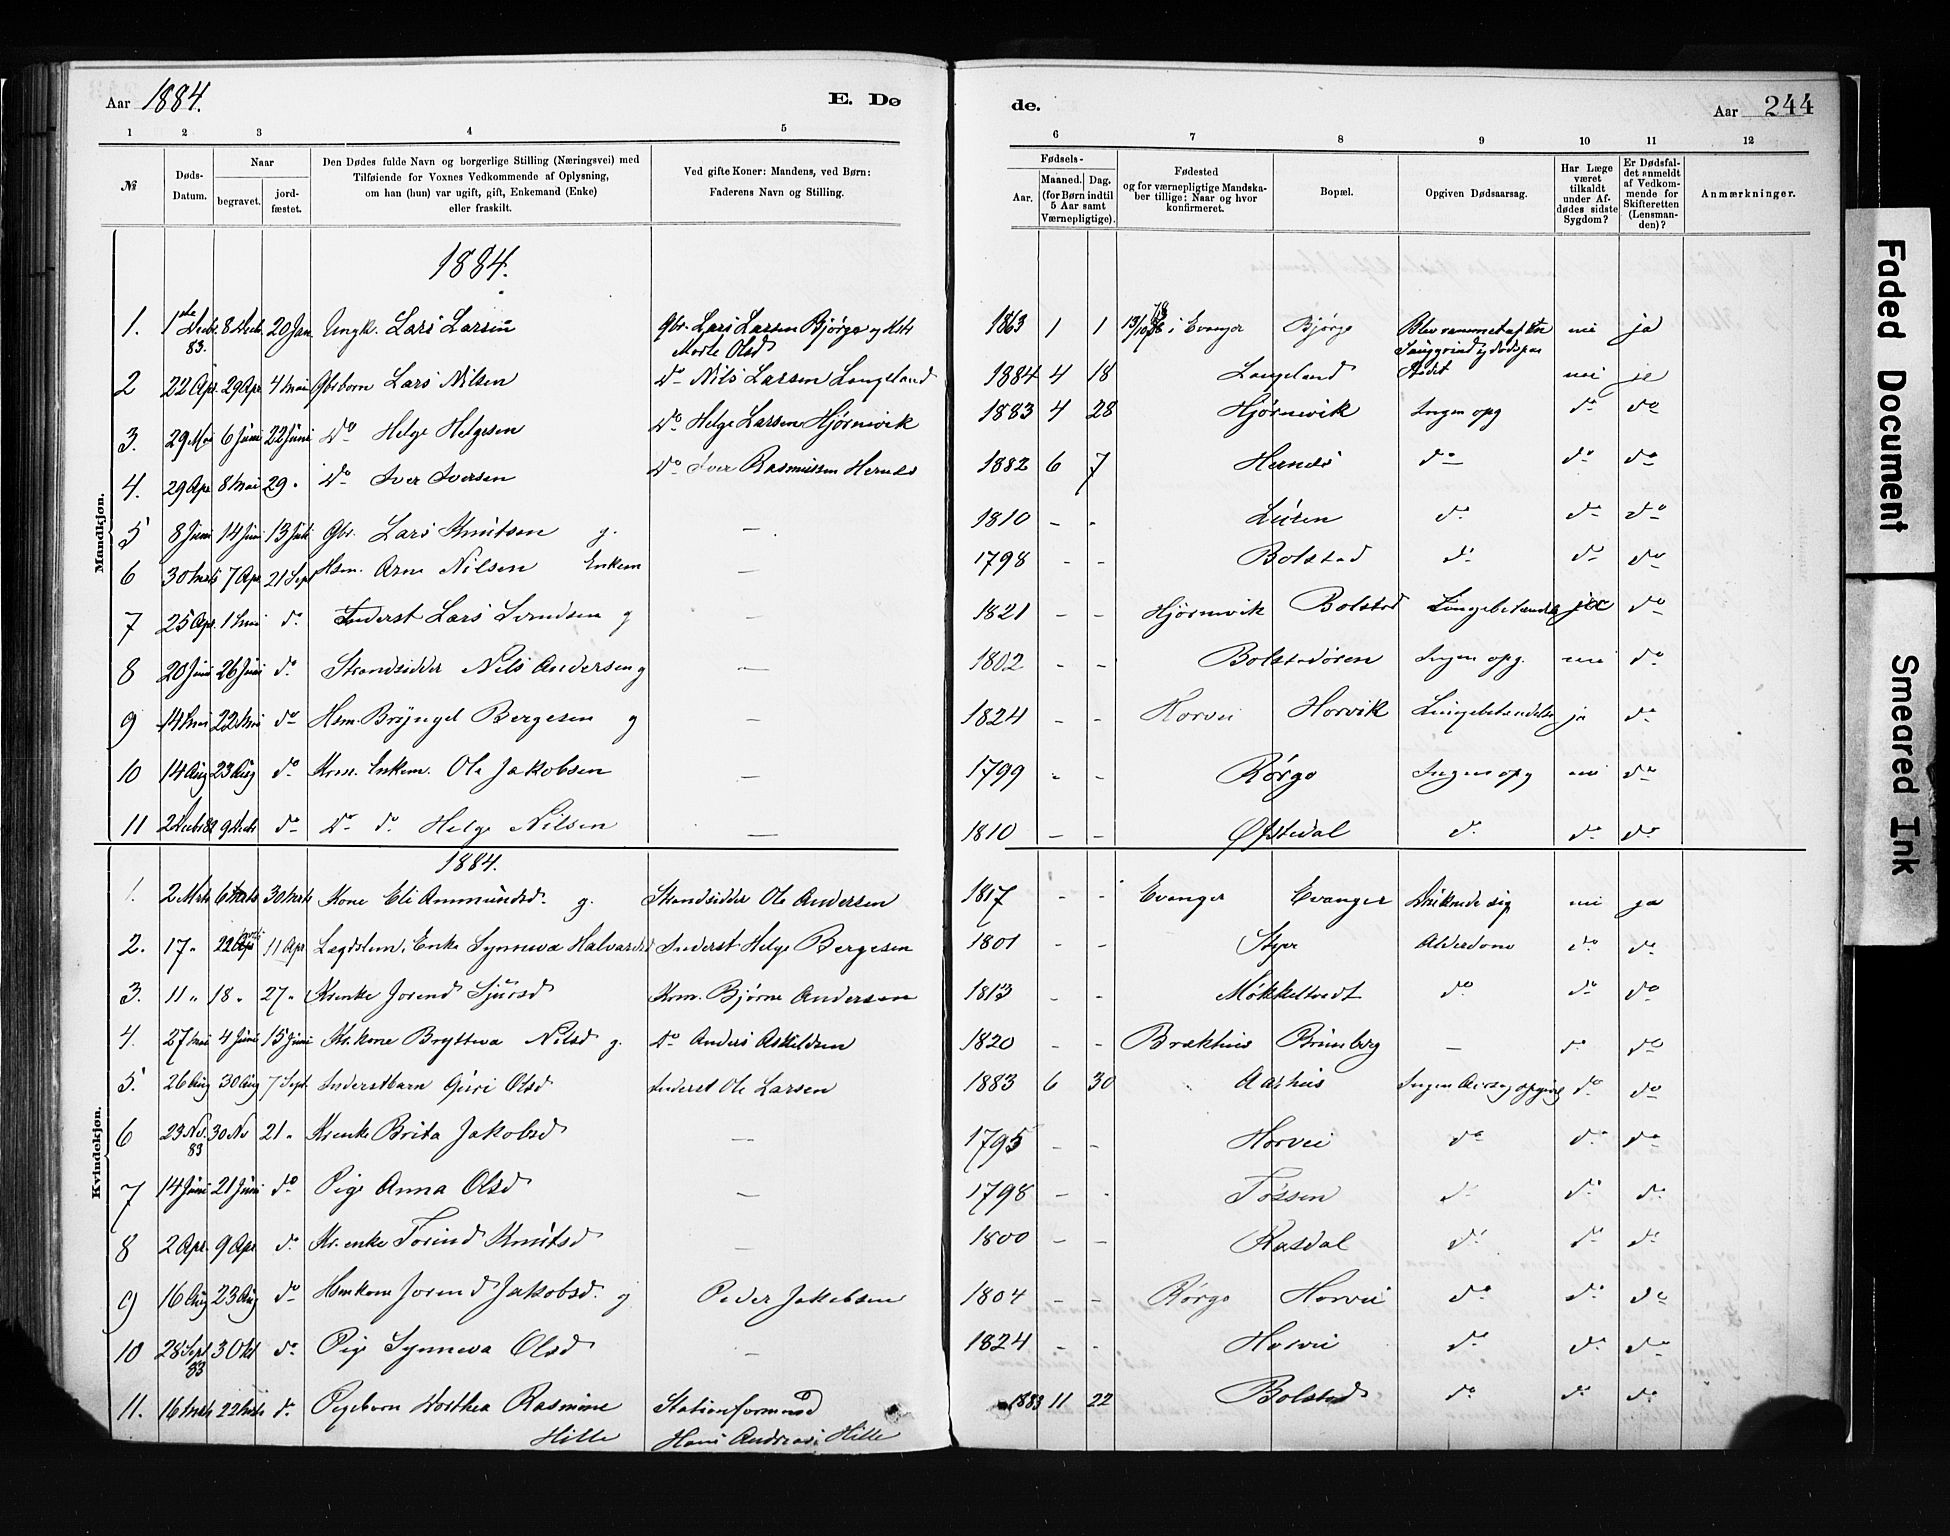 Aar 1884. E. Dø de. Aar 244
1 2 3 4 5 6 7 8 9 10 11 12
№ Døds-Datum. Naar begravet. jord-fæstet. Den Dødes fulde Navn og borgerlige Stilling (Næringsvei) med Tilføiende for Voxnes Vedkommende af Oplysning, om han (hun) var ugift, gift, Enkemand (Enke) eller fraskilt. Ved gifte Koner: Mandens, ved Børn: Faderens Navn og Stilling. Fødsels- Aar. Maaned. Dag. (for Børn indtil 5 Aar samt Værnepligtige). Fødested og for værnepligtige Mandskaber tillige: Naar og hvor konfirmeret. Bopæl. Opgiven Dødsaarsag. Har Læge været tilkaldt under Afdødes sidste Sygdom? Er Dødsfaldet anmeldt af Vedkommende for Skifteretten (Lensmanden)? Anmærkninger.
Mandkjøn.
1884.
1. 1ste Decbr. 83. 8 Decb. 20 Jan. Ungk. Lars Larsen Gbr. Lars Larsen Bjørge og Marte Olsd 1863 1 1 i Evanger Bjørge nei ja
2 22 Apr. 29 Apr 4 Mai Gbrbarn Lars Nilsen Do Nils Larsen Langeland 1884 4 18 Langeland nei ja
3. 29 Mai 6 Juni 22 Juni Do Helge Helgesen Do Helge Larsen Hjørnevik 1883 4 28 Hjørnevik Ingen opg do do
4. 29 Apr 8 Mai 29 " Do Iver Iversen Do Iver Rasmussen Hernes 1882 6 7 Hernes do do do
5 8 Juni 14 Juni 13 Juli Gbr. Lars Knutsen g. — 1810 - - do do do
6 30 Mrts 7 Apr. 21 Sept Hsm. Arne Nilsen Enkem — 1798 - - Bolstad do do do
7 25 Apr. 1 Mai do Inderst Lars g — 1821 - - Hjørnevik Bolstad Lungebetændelse ja do
8 20 Juni 26 Juni do Strandsidder Nils Andersen g — 1802 - - Bolstadøren Ingen opg. nei do
9 14 Mai 22 Mai do Hsm. Brynjel Bergesen g — 1824 - - Horvei Horvik Lungebetændelse ja do
10 14 Aug 23 Aug do Krm. Enkem. Ole Jakobsen — 1799 - - Rørge Ingen opg nei do
11 2 Decbr 9 Decb do Do do Helge Nilsen — 1810 - - Øfstedal do do do
Kvindekjøn.
1884.
1. 2 Mrts 6 Mrts 30 Mrts Kone Eli Ammundsd. g. Strandsidder Ole Andersen 1817 - - Evanger Evanger nei ja
2. 17 " 22 11 Apr Lægdslem. Enke Synneva Halvardsd Inderst Helge Bergesen 1801 - - Alderdom do do
3. 11 " 18 " 27 " Krenke Jorend Sjursd Krm. Bjørne Andersen 1813 - - Møkkeltvedt do do do
4. 27 Mai 4 Juni 15 Juni Kr. kone Brytteva Nilsd g. Do Anders Askildsen 1820 - - Brækhus — do do
5. 26 Aug 30 Aug 7 Sept. Inderstbarn Guri Olsd Inderst Ole Larsen 1883 6 30 Aarhus Ingen Aarsag opgivet do do
6 23 Nov. 83 30 Nov 21 " Krenke Brita Jakobsd — 1795 - - Horvei do do do
7 14 Juni 21 Juni do Pige Anna Olsd — 1798 - - Fossen do do do
8 2 Apr. 9 Apr do Kr. enke Torind Knutsd — 1800 - - Rasdal do do do
9 16 Aug 23 Aug do Hsmkone Jorend Jakobsd. g Peder Jakobsen 1804 - - Rørge Horvei do do do
10 28 Sept. 83 3 Okt do Pige Synneva Olsd — 1824 - - Horvei do do do
11. 16 Mrts 22 Mrts do Pigebarn Dorthea Rasmine Stationsformand 1883 11 22 Bolstad do do do
Hille Hans Andreas Hille
Faded Document
Smeared Ink